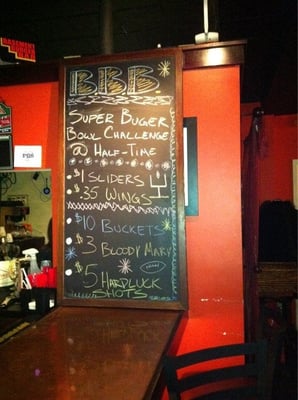 BASEMENT
BURGER
BAR
BBB
SUPER BUGER
BOWL CHALLENGE
@ HALF-TIME
$1 SLIDERS
$.35 WINGS
$10 BUCKETS
$3 BLOODY MARY
$5 HARDLUCK
SHOTS